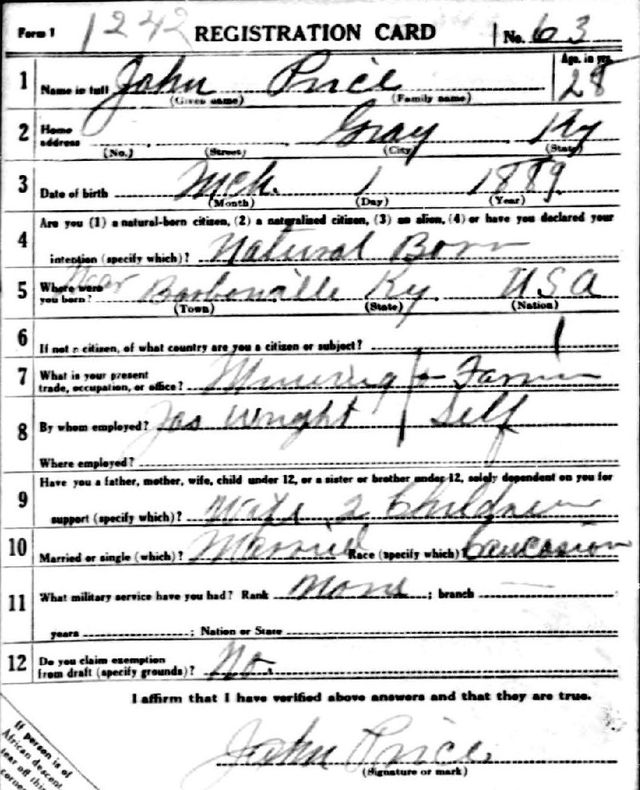 Form 1 1242 REGISTRATION CARD No. 63
1 Name in full John Price Age, in yrs. 28
(Given name) (Family name)
2 Home address Gray Ky
(No.) (Street) (City) (State)
3 Date of birth Mch. 1 1889
(Month) (Day) (Year)
4 Are you (1) a natural-born citizen, (2) a naturalized citizen, (3) an alien, (4) or have you declared your
intention (specify which)? Natural Born
5 Where were you born? Near Barbourville Ky USA
(Town) (State) (Nation)
6 If not a citizen, of what country are you a citizen or subject?
7 What is your present
trade, occupation, or office? Mining + Farmer
8 By whom employed? Jas Wright / Self
Where employed?
9 Have you a father, mother, wife, child under 12, or a sister or brother under 12, solely dependent on you for
support (specify which)? Wife 2 Children
10 Married or single (which)? Married Race (specify which)? Caucasion
11 What military service have you had? Rank None ; branch —
years ; Nation or State
12 Do you claim exemption
from draft (specify grounds)? No
I affirm that I have verified above answers and that they are true.
John Price
(Signature or mark)
If person is of
African descent
tear off this
corner